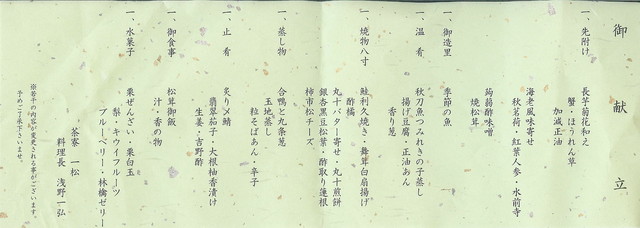 御献立
一、先附け
長芋菊花和え
蟹・ほうれん草
加減正油
海老風味寄せ
秋茗荷・紅葉人参・水前寺
蒟蒻酢味噌
焼松茸
一、御造里
季節の魚
一、温肴
秋刀魚つみれきの子蒸し
揚げ豆腐・正油あん
香り葱
一、焼物八寸
鮭利久焼き・舞茸白扇揚げ
酢橘
丸十バター寄せ・丸十煎餅
銀杏黒豆松葉・酢取り蓮根
柿市松チーズ
一、蒸し物
合鴨と九条葱
玉地蒸し
粒そばあん・辛子
一、止肴
炙り〆鯖
翡翠茄子・大根柚香漬け
生姜・吉野酢
一、御食事
松茸御飯
汁・香の物
一、水菓子
栗ぜんざい・栗白玉
梨・キウイフルーツ
ブルーベリー・林檎ゼリー
茶寮 一松
料理長 浅野一弘
※若干の内容が変更される事がございます。
予めご了承下さいませ。